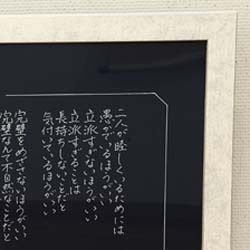 二人が睦じくいるためには
愚かでいるほうがいい
立派すぎないほうがいい
立派すぎることは
長持ちしないことだと
気付いているほうがいい
完璧をめざさないほうがいい
完璧なんて不自然なことだと